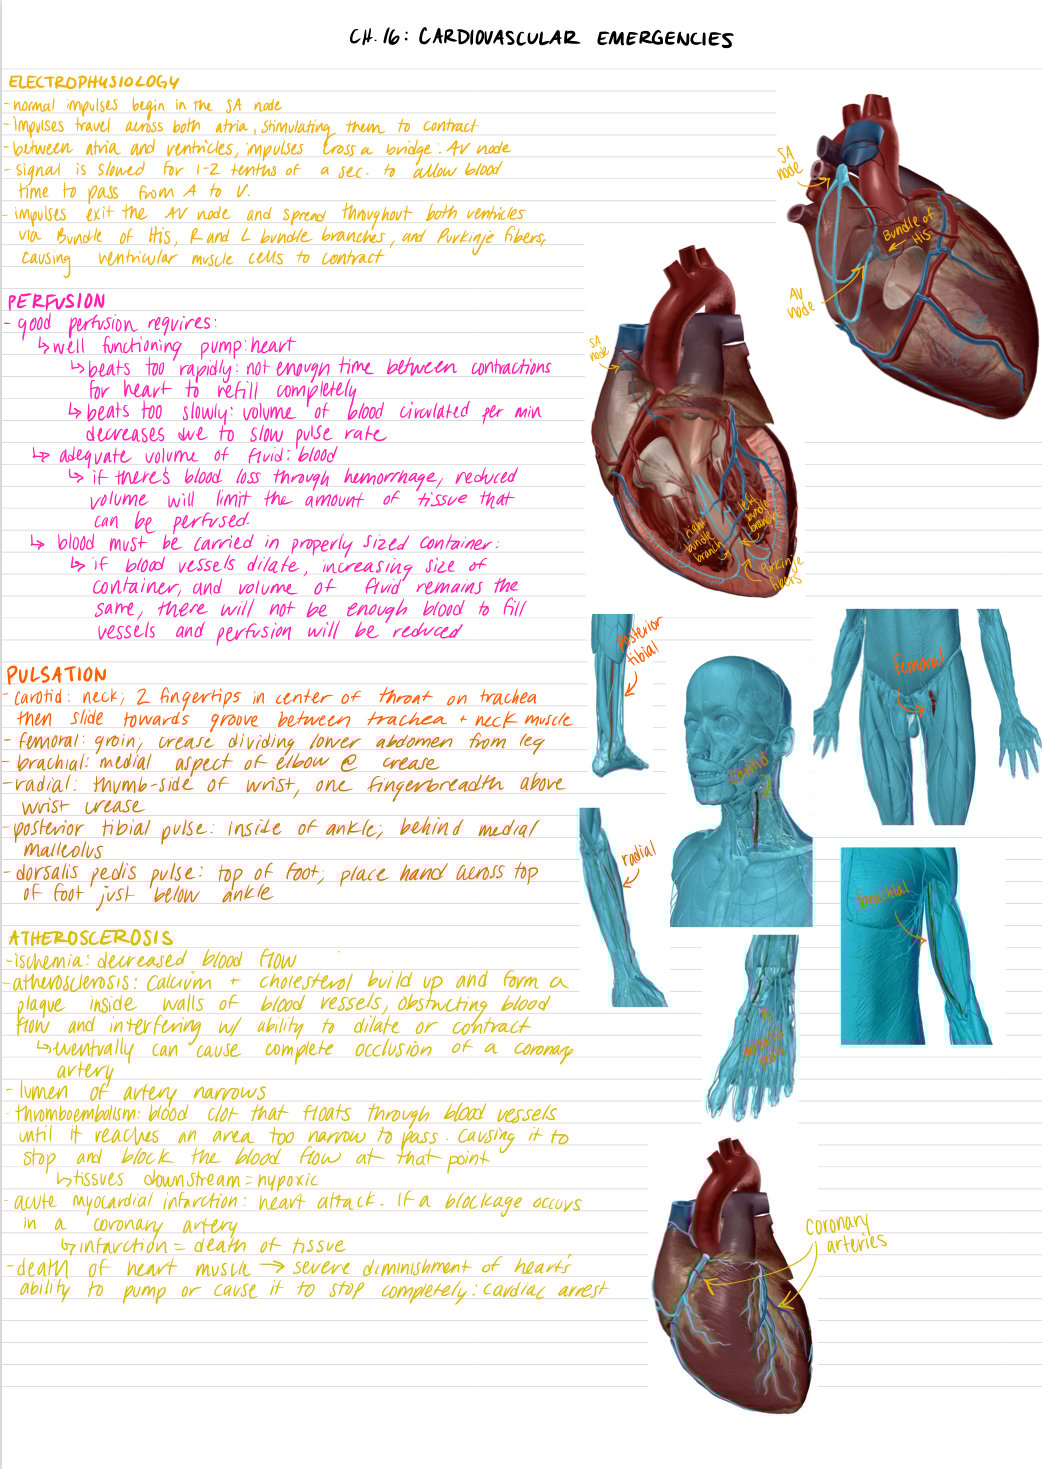 CH. 16: CARDIOVASCULAR EMERGENCIES
ELECTROPHYSIOLOGY
- normal impulses begin in the SA node
- Impulses travel across both atria, stimulating them to contract
- between atria and ventricles, impulses cross a bridge. AV node
- signal is slowed for 1-2 tenths of a sec. to allow blood
time to pass from A to V.
- impulses exit the AV node and spread throughout both ventricles
via Bundle of His, R and L bundle branches, and Purkinje fibers,
causing ventricular muscle cells to contract
PERFUSION
- good perfusion requires:
↳ well functioning pump: heart
↳ beats too rapidly: not enough time between contractions
for heart to refill completely
↳ beats too slowly: volume of blood circulated per min
decreases due to slow pulse rate
↳ adequate volume of fluid: blood
↳ if there's blood loss through hemorrhage, reduced
volume will limit the amount of tissue that
can be perfused.
↳ blood must be carried in properly sized container:
↳ if blood vessels dilate, increasing size of
container, and volume of fluid remains the
same, there will not be enough blood to fill
vessels and perfusion will be reduced
PULSATION
- carotid: neck; 2 fingertips in center of throat on trachea
then slide towards groove between trachea + neck muscle
- femoral: groin, crease dividing lower abdomen from leg
- brachial: medial aspect of elbow @ crease
- radial: thumb-side of wrist, one fingerbreadth above
wrist crease
- posterior tibial pulse: inside of ankle; behind medial
malleolus
- dorsalis pedis pulse: top of foot; place hand across top
of foot just below ankle
ATHEROSCEROSIS
- ischemia: decreased blood flow
- atherosclerosis: calcium + cholesterol build up and form a
plaque inside walls of blood vessels, obstructing blood
flow and interfering w/ ability to dilate or contract
↳ eventually can cause complete occlusion of a coronary
artery
- lumen of artery narrows
- thromboembolism: blood clot that floats through blood vessels
until it reaches an area too narrow to pass. Causing it to
stop and block the blood flow at that point
↳ tissues downstream = hypoxic
- acute myocardial infarction: heart attack. If a blockage occurs
in a coronary artery
↳ infarction = death of tissue
- death of heart muscle → severe diminishment of heart's
ability to pump or cause it to stop completely: cardiac arrest
SA
node
Bundle of
His
AV
node
SA
node
right
bundle
branch
left
bundle
branch
Purkinje
fibers
posterior
tibial
femoral
carotid
radial
brachial
dorsalis
pedis
coronary
arteries